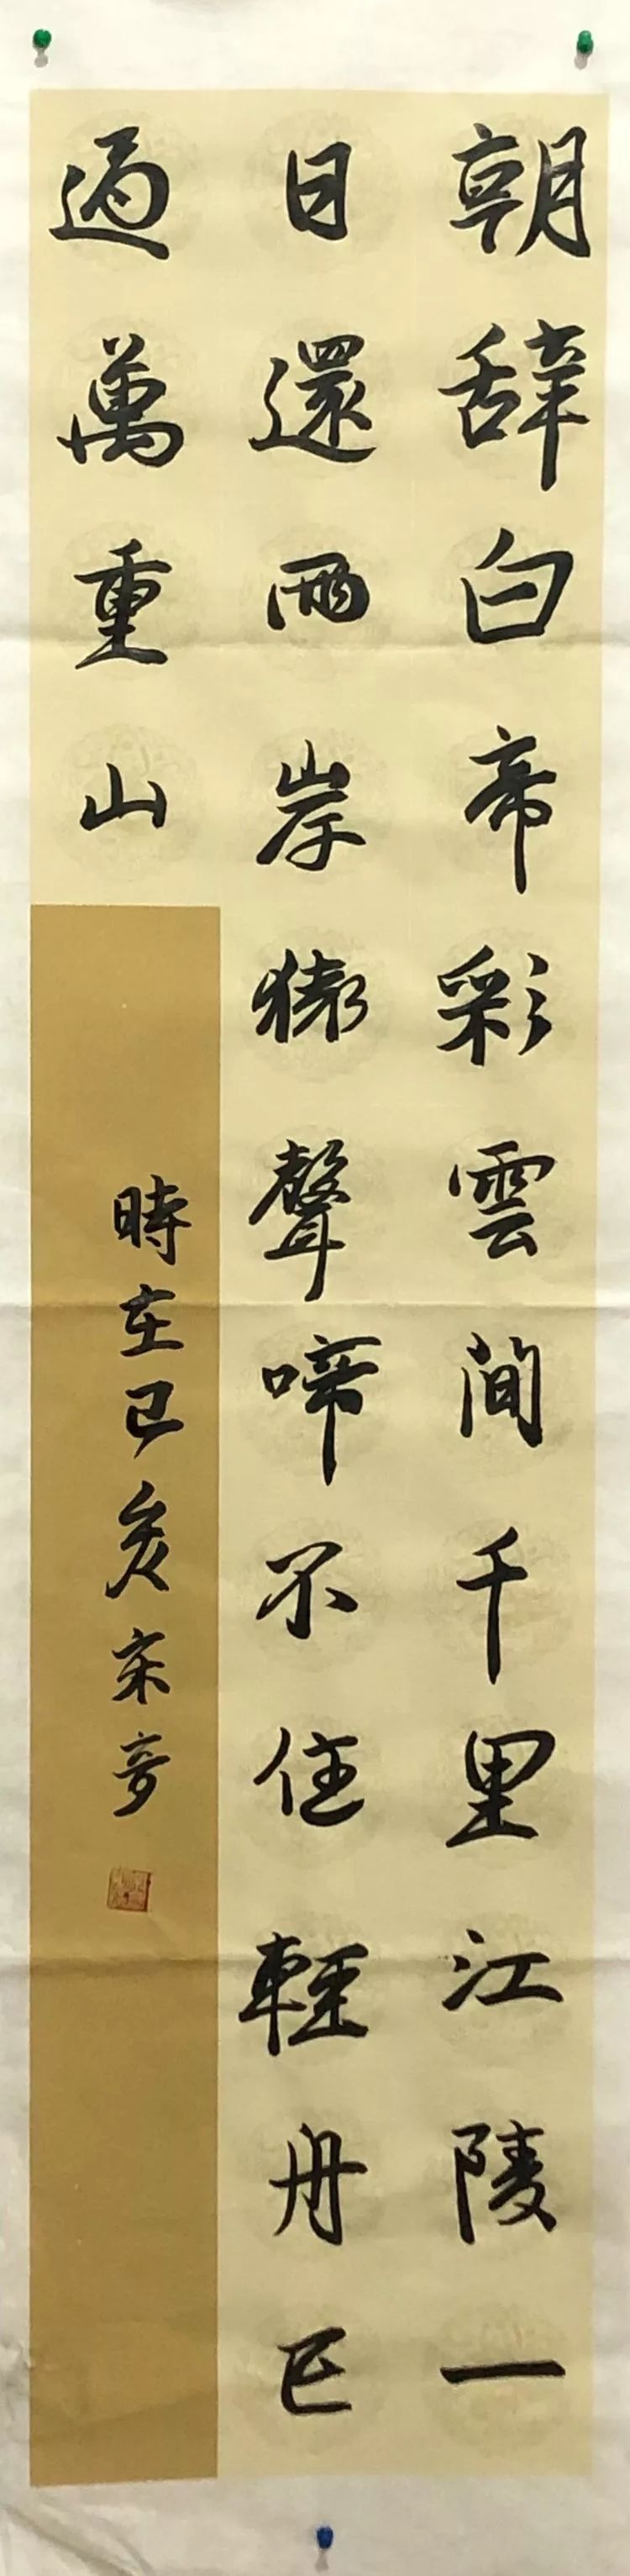 朝辞白帝彩雲间千里江陵一
日還兩岸猿聲啼不住輕舟已
過萬重山
時在己亥宋奇